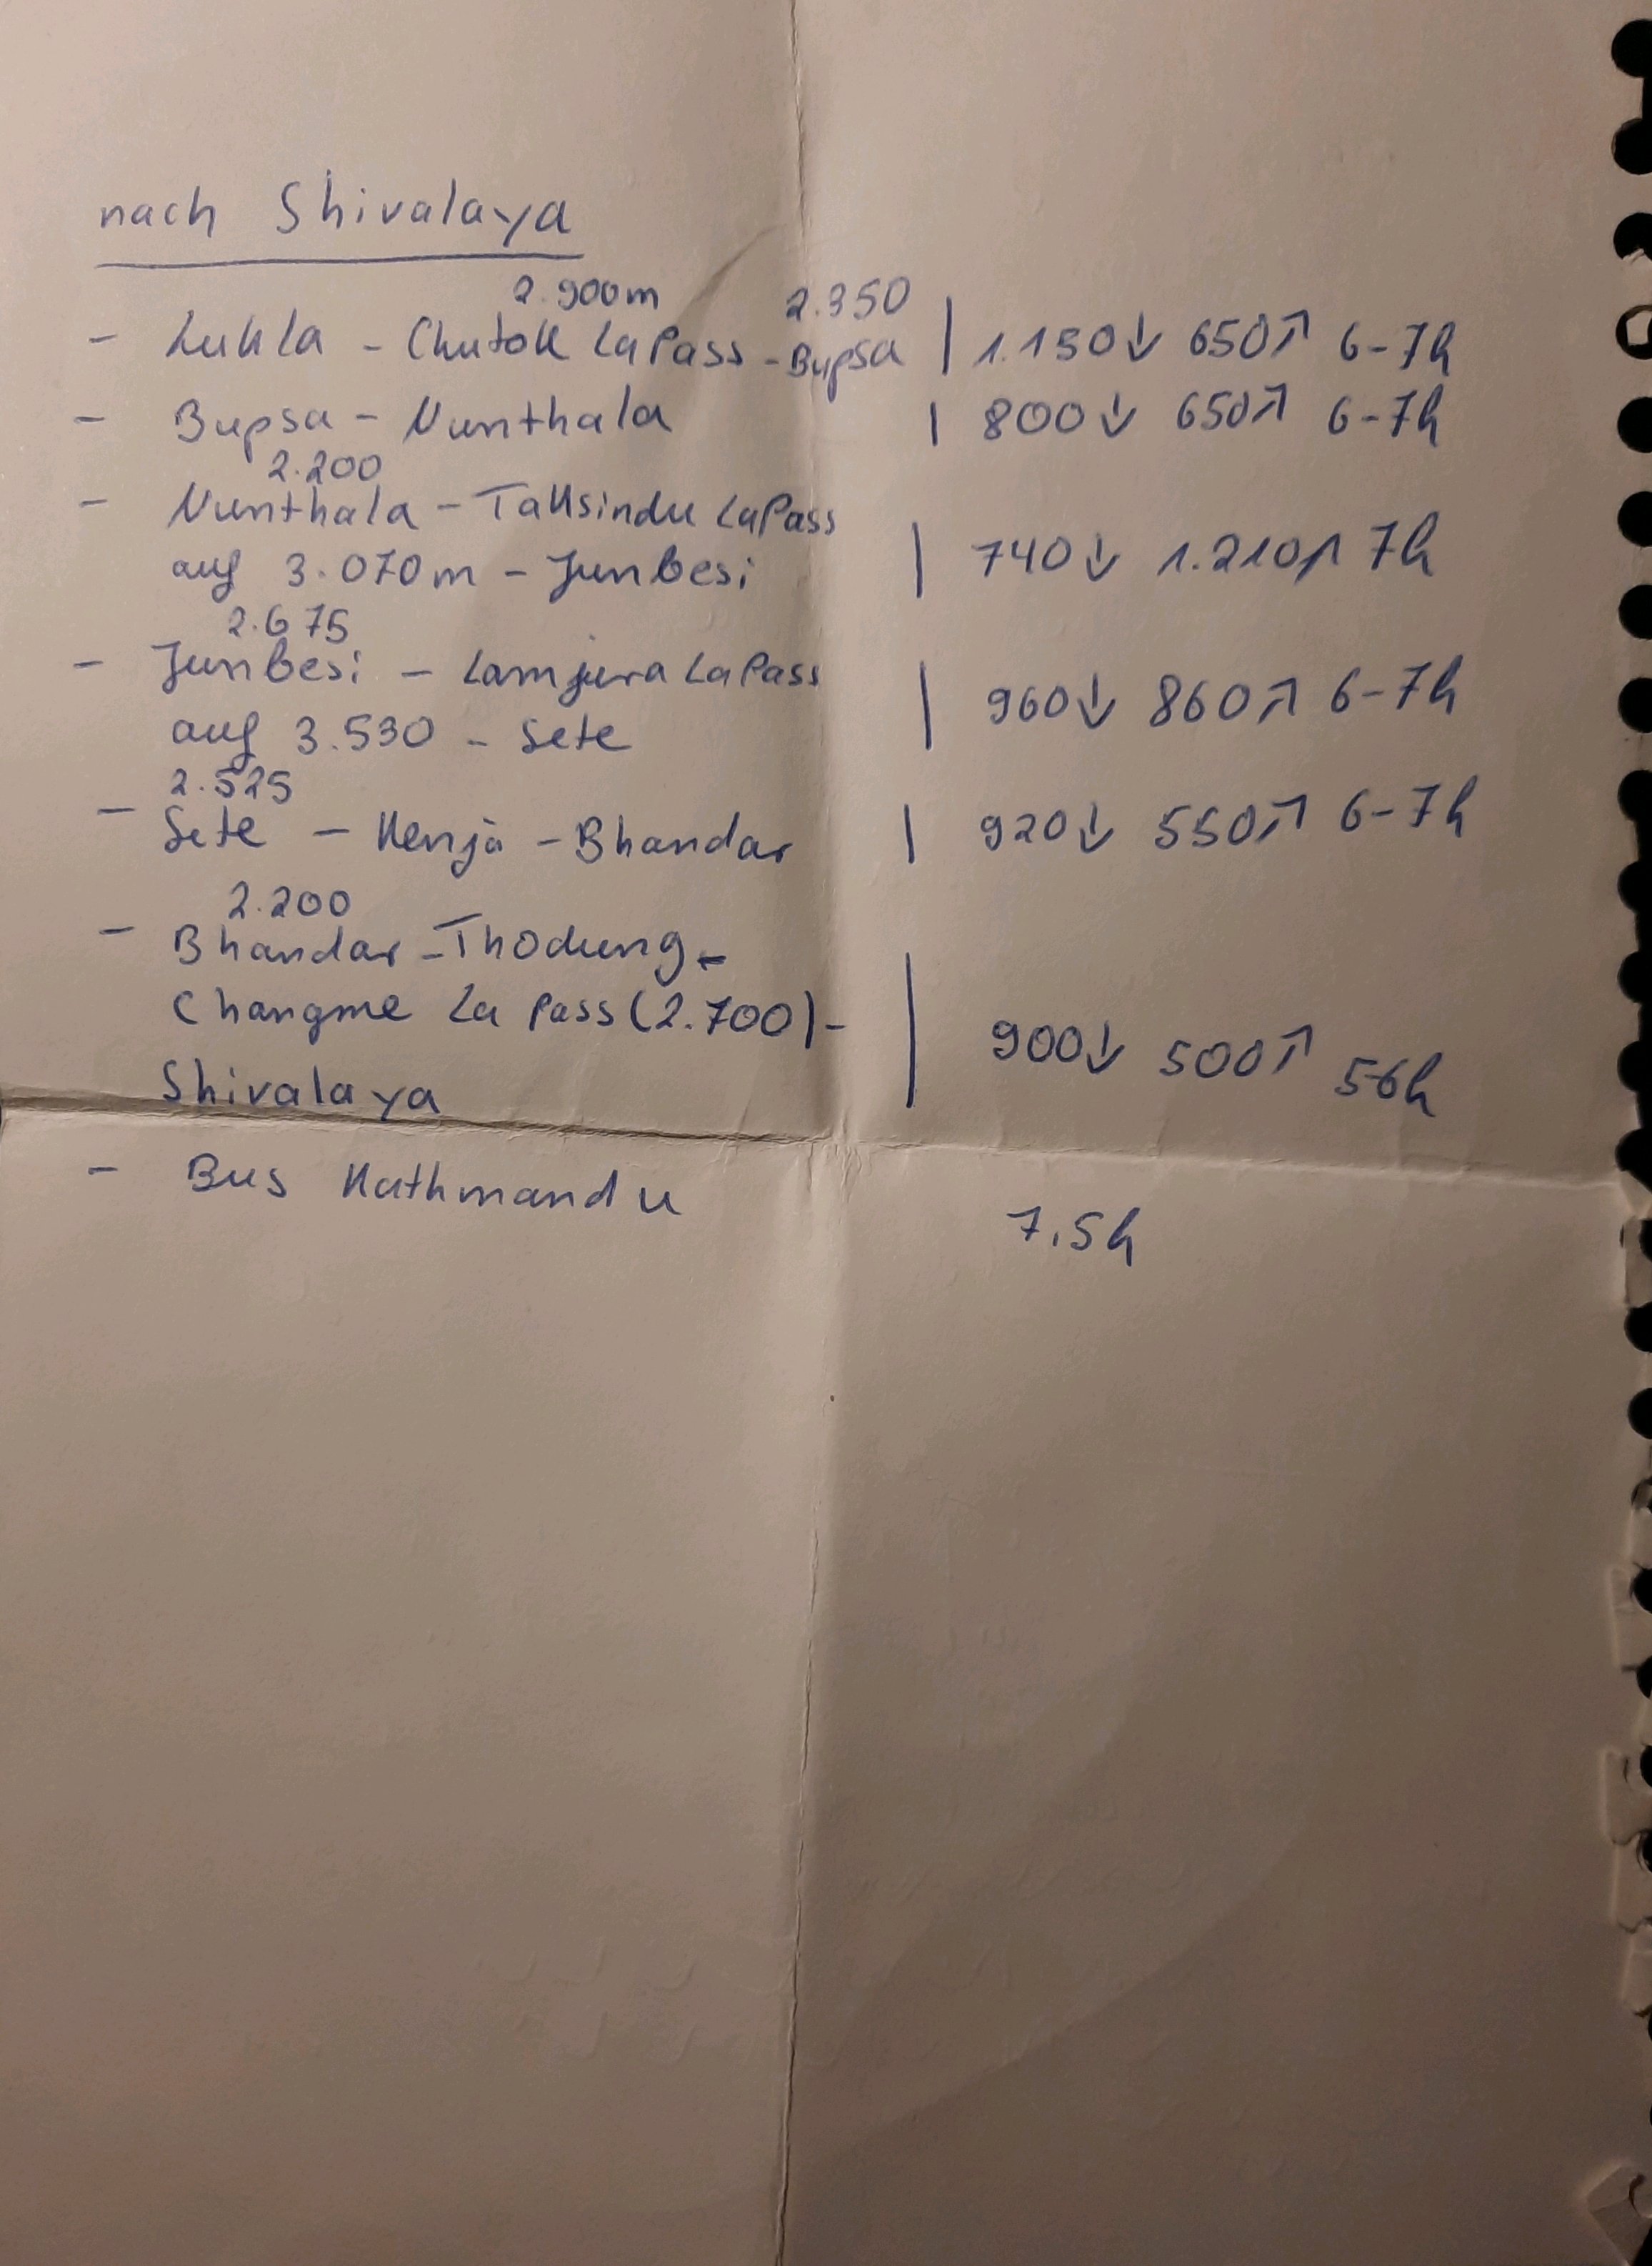 nach Shivalaya
2.900m 2.350
- Lukla - Chutok La Pass - Bupsa | 1.150↓ 650↗ 6-7h
- Bupsa - Nunthala | 800↓ 650↗ 6-7h
2.200
- Nunthala - Taksindu La Pass
auf 3.070m - Junbesi | 740↓ 1.210↗ 7h
2.675
- Junbesi - Lamjura La Pass
auf 3.530 - Sete | 960↓ 860↗ 6-7h
2.525
- Sete - Kenja - Bhandar | 920↓ 550↗ 6-7h
2.200
- Bhandar - Thodung -
Changme La Pass (2.700) -
Shivalaya | 900↓ 500↗ 5-6h
- Bus Kathmandu 7.5h